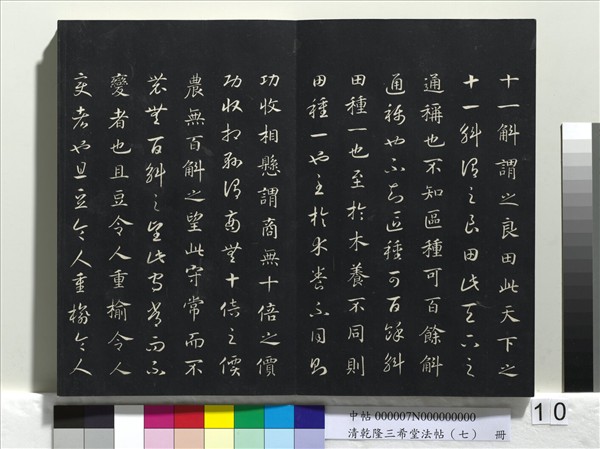 十一斛謂之良田此天下之
十一斛謂之良田此天下之
通稱也不知區種可百餘斛
通稱也不知區種可百餘斛
田種一也至於木養不同則
田種一也至於木養不同則
功收相懸謂商無十倍之價
功收相懸謂商無十倍之價
農無百斛之望此守常而不
農無百斛之望此守常而不
變者也且豆令人重榆令人
變者也且豆令人重榆令人
中帖 000007N000000000
清乾隆三希堂法帖（七） 冊
10